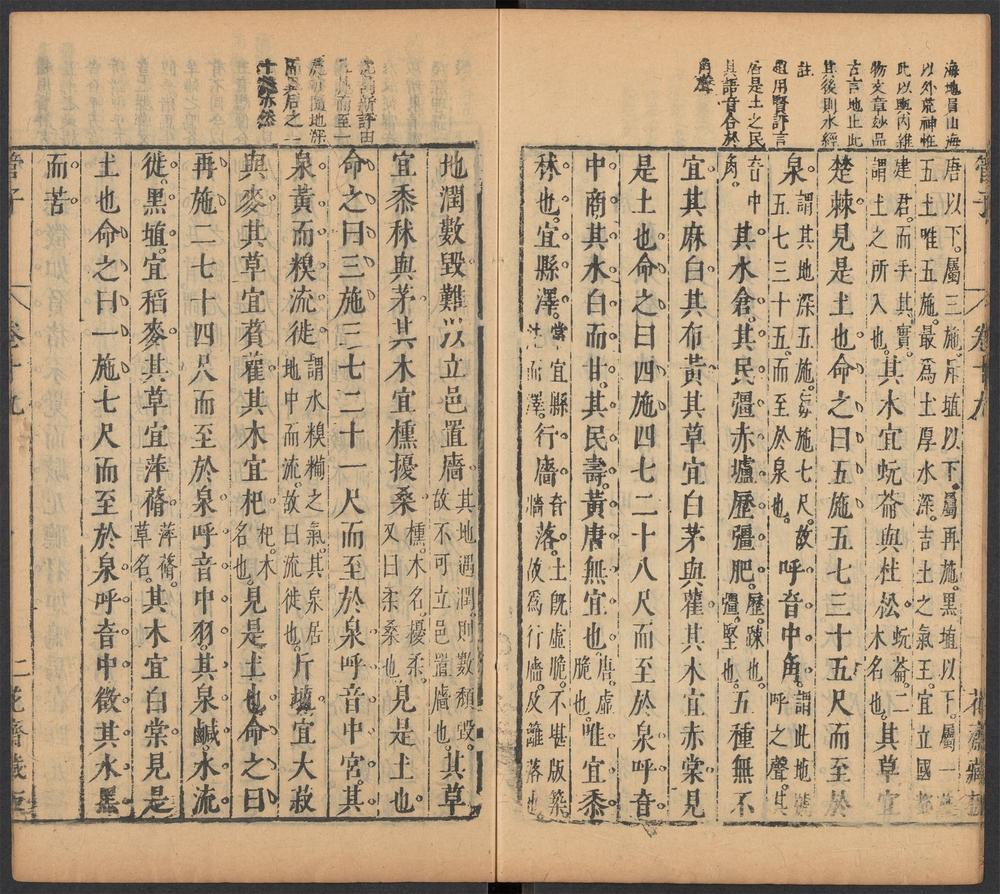 管子 卷十九 花齋藏板
海地員山海
以外荒神怪
此以甄內維
物文章妙品
古言地止此
其後則水經
註
趙用賢評言
居是土之民
其語音合於
角聲
唐以下。屬三施。斥埴以下。屬再施。黑埴以下。屬一施
五土唯五施。最爲土厚水深。吉土之氣王。宜立國都
建君。而手其實。謂土之所入也。其木宜蚖菕與杜松蚖菕二木名也。其草宜
楚棘見是土也命之曰五施五七三十五尺而至於
泉謂其地深五施。每施七尺。故五七三十五。而至於泉也。呼音中角。謂此地號呼之聲。其
音中角。其水倉。其民彊。赤壚歷彊肥。歷。疎也。彊。堅也。五種無不
宜其麻白其布黃其草宜白茅與雚其木宜赤棠見
是土也命之曰四施四七二十八尺而至於泉呼音
中商。其水白而甘。其民壽。黃唐無宜也。唐。虛脆也。唯宜黍
秫也。宜縣澤。常宜縣注而澤。行廧音牆落。土旣虛脆。不堪版築。故爲行廧。及離落也
沈鼎新評田
地潤數毀難以立邑置廧。其地遇潤。則數頹毀。故不可立邑置廧也。其草
宜黍秫與茅。其木宜櫄擾桑櫄。木名。擾柔。又曰柔桑也。見是土也
命之曰三施三七二十一尺而至於泉呼音中宮。其
泉黃而糗流徙謂水糗糒之氣。其泉居地中而流。故曰流徙也。斥埴宜大菽
與麥。其草宜萯雚其木宜杞。杞。木名也。見是土也命之曰
再施二七十四尺而至於泉呼音中羽。其泉鹹。水流
徙。黑埴。宜稻麥。其草宜萍蓨。萍蓨。草名。其木宜白棠。見是
土也命之曰一施七尺而至於泉呼音中徵其水黑
而苦。
管子 卷十九 二 花齋藏板